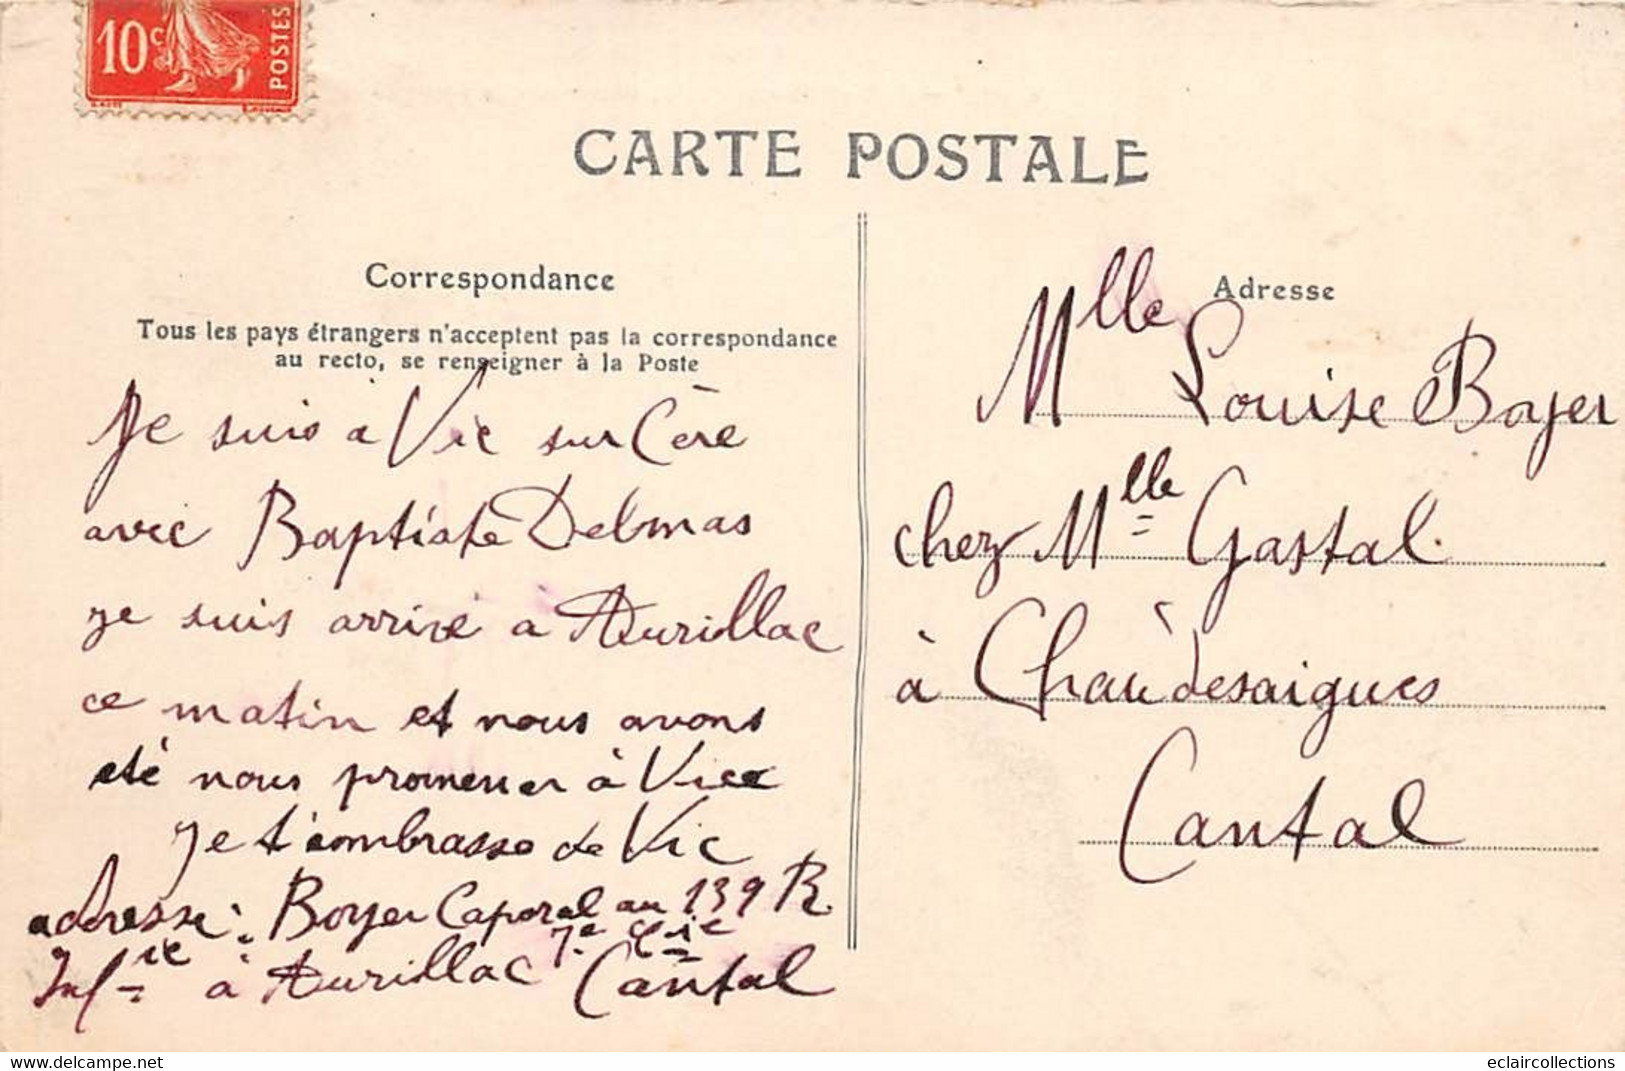 10c POSTES
CARTE POSTALE
Correspondance
Tous les pays étrangers n'acceptent pas la correspondance
au recto, se renseigner à la Poste
Je suis à Vic sur Cère
avec Baptiste Delmas
je suis arrivé à Aurillac
ce matin et nous avons
été nous promener à Vic
Je t'embrasse de Vic
adresse : Boyer Caporal au 139 R.
Infie à Aurillac 7e Cie Cantal
Adresse
Mlle Louise Boyer
chez Mlle Gastal
à Chaudesaigues
Cantal
www.delcampe.net
eclaircollections